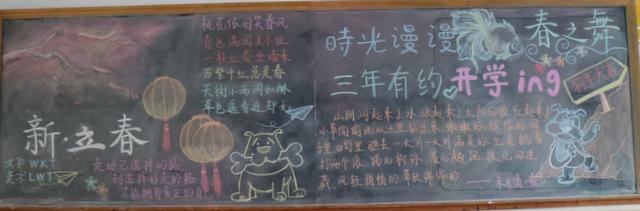 桃花依旧笑春风
春色满园关不住
一枝红杏出墙来
万紫千红总是春
天街小雨润如酥
草色遥看近却无
新·立春
文字 WKT
美术 LWT
走过已选择的路
别选择好走的路
才能拥有真正的自己
时光漫漫
春之舞
三年有约
开学ing
山朗润起来了水涨起来了太阳的脸红起来了
小草偷偷地从土里钻出来 嫩嫩的 绿绿的 园子
里 田野里 瞧去 一大片一大片满是的 坐着 躺着
打两个滚 踢几脚球 赛几趟跑 捉几回迷
藏 风轻悄悄的 草软绵绵的
——朱自清